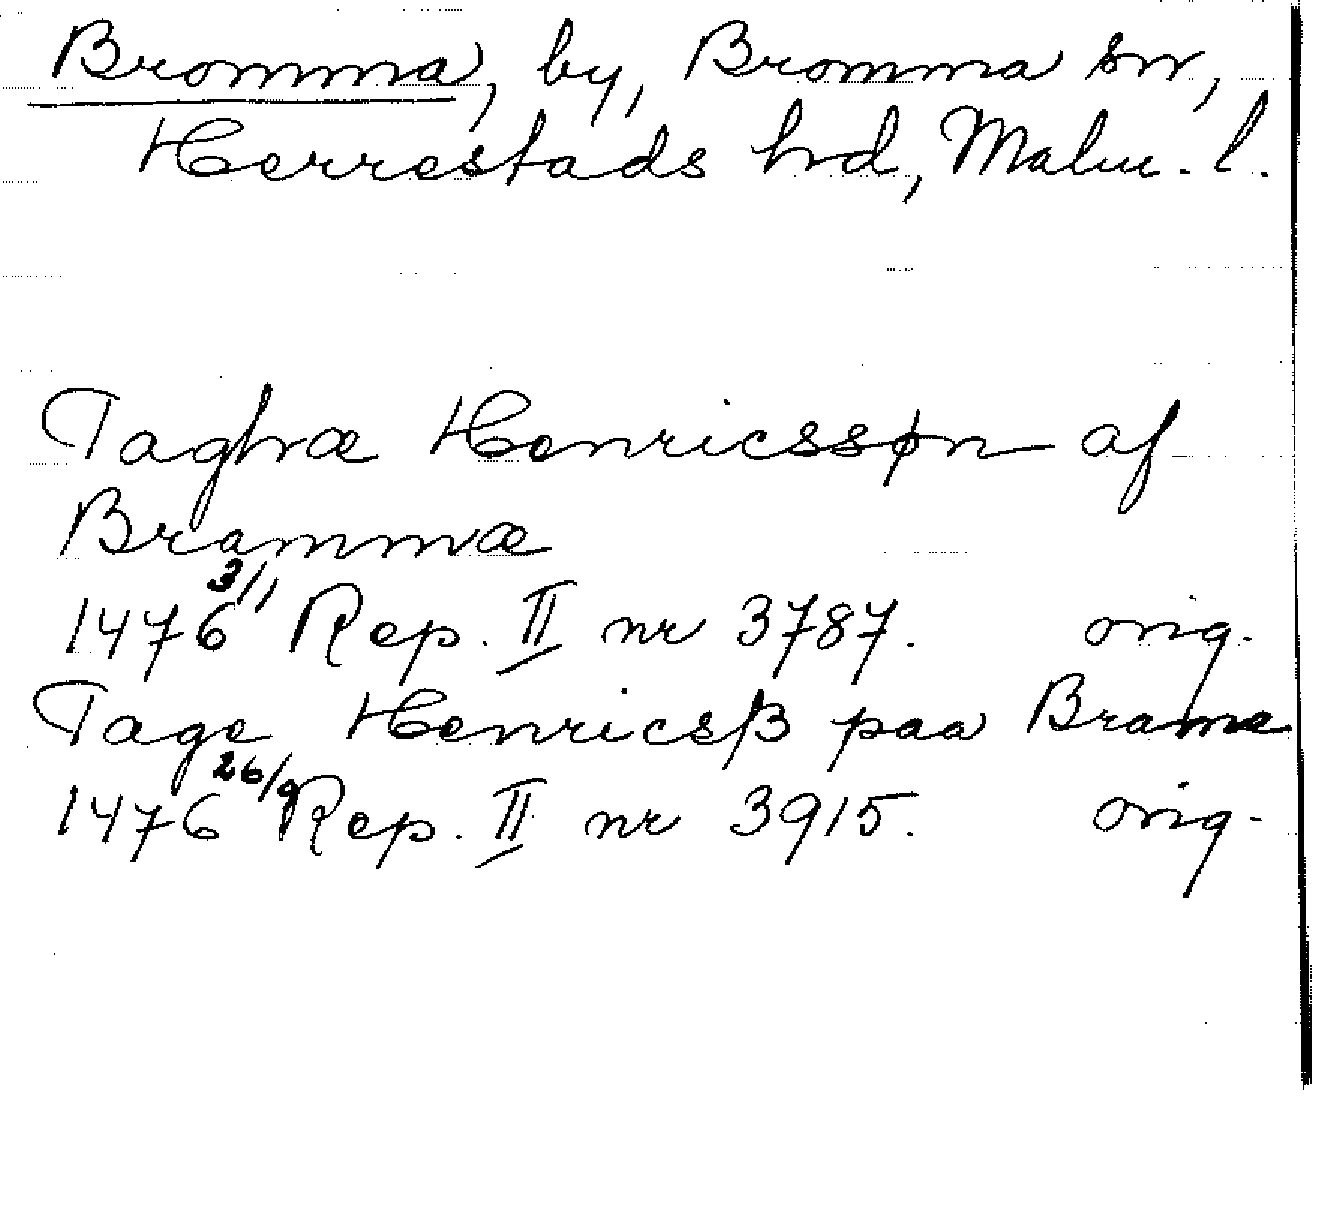 Bromma, by, Bromma sn,
Herrestads hd, Malm. l.
Taghæ Henricssøn af
Brammæ
1476 3/1 Rep. II nr 3787. orig.
Tage Henricsß paa Brame
1476 26/9 Rep. II nr 3915. orig.